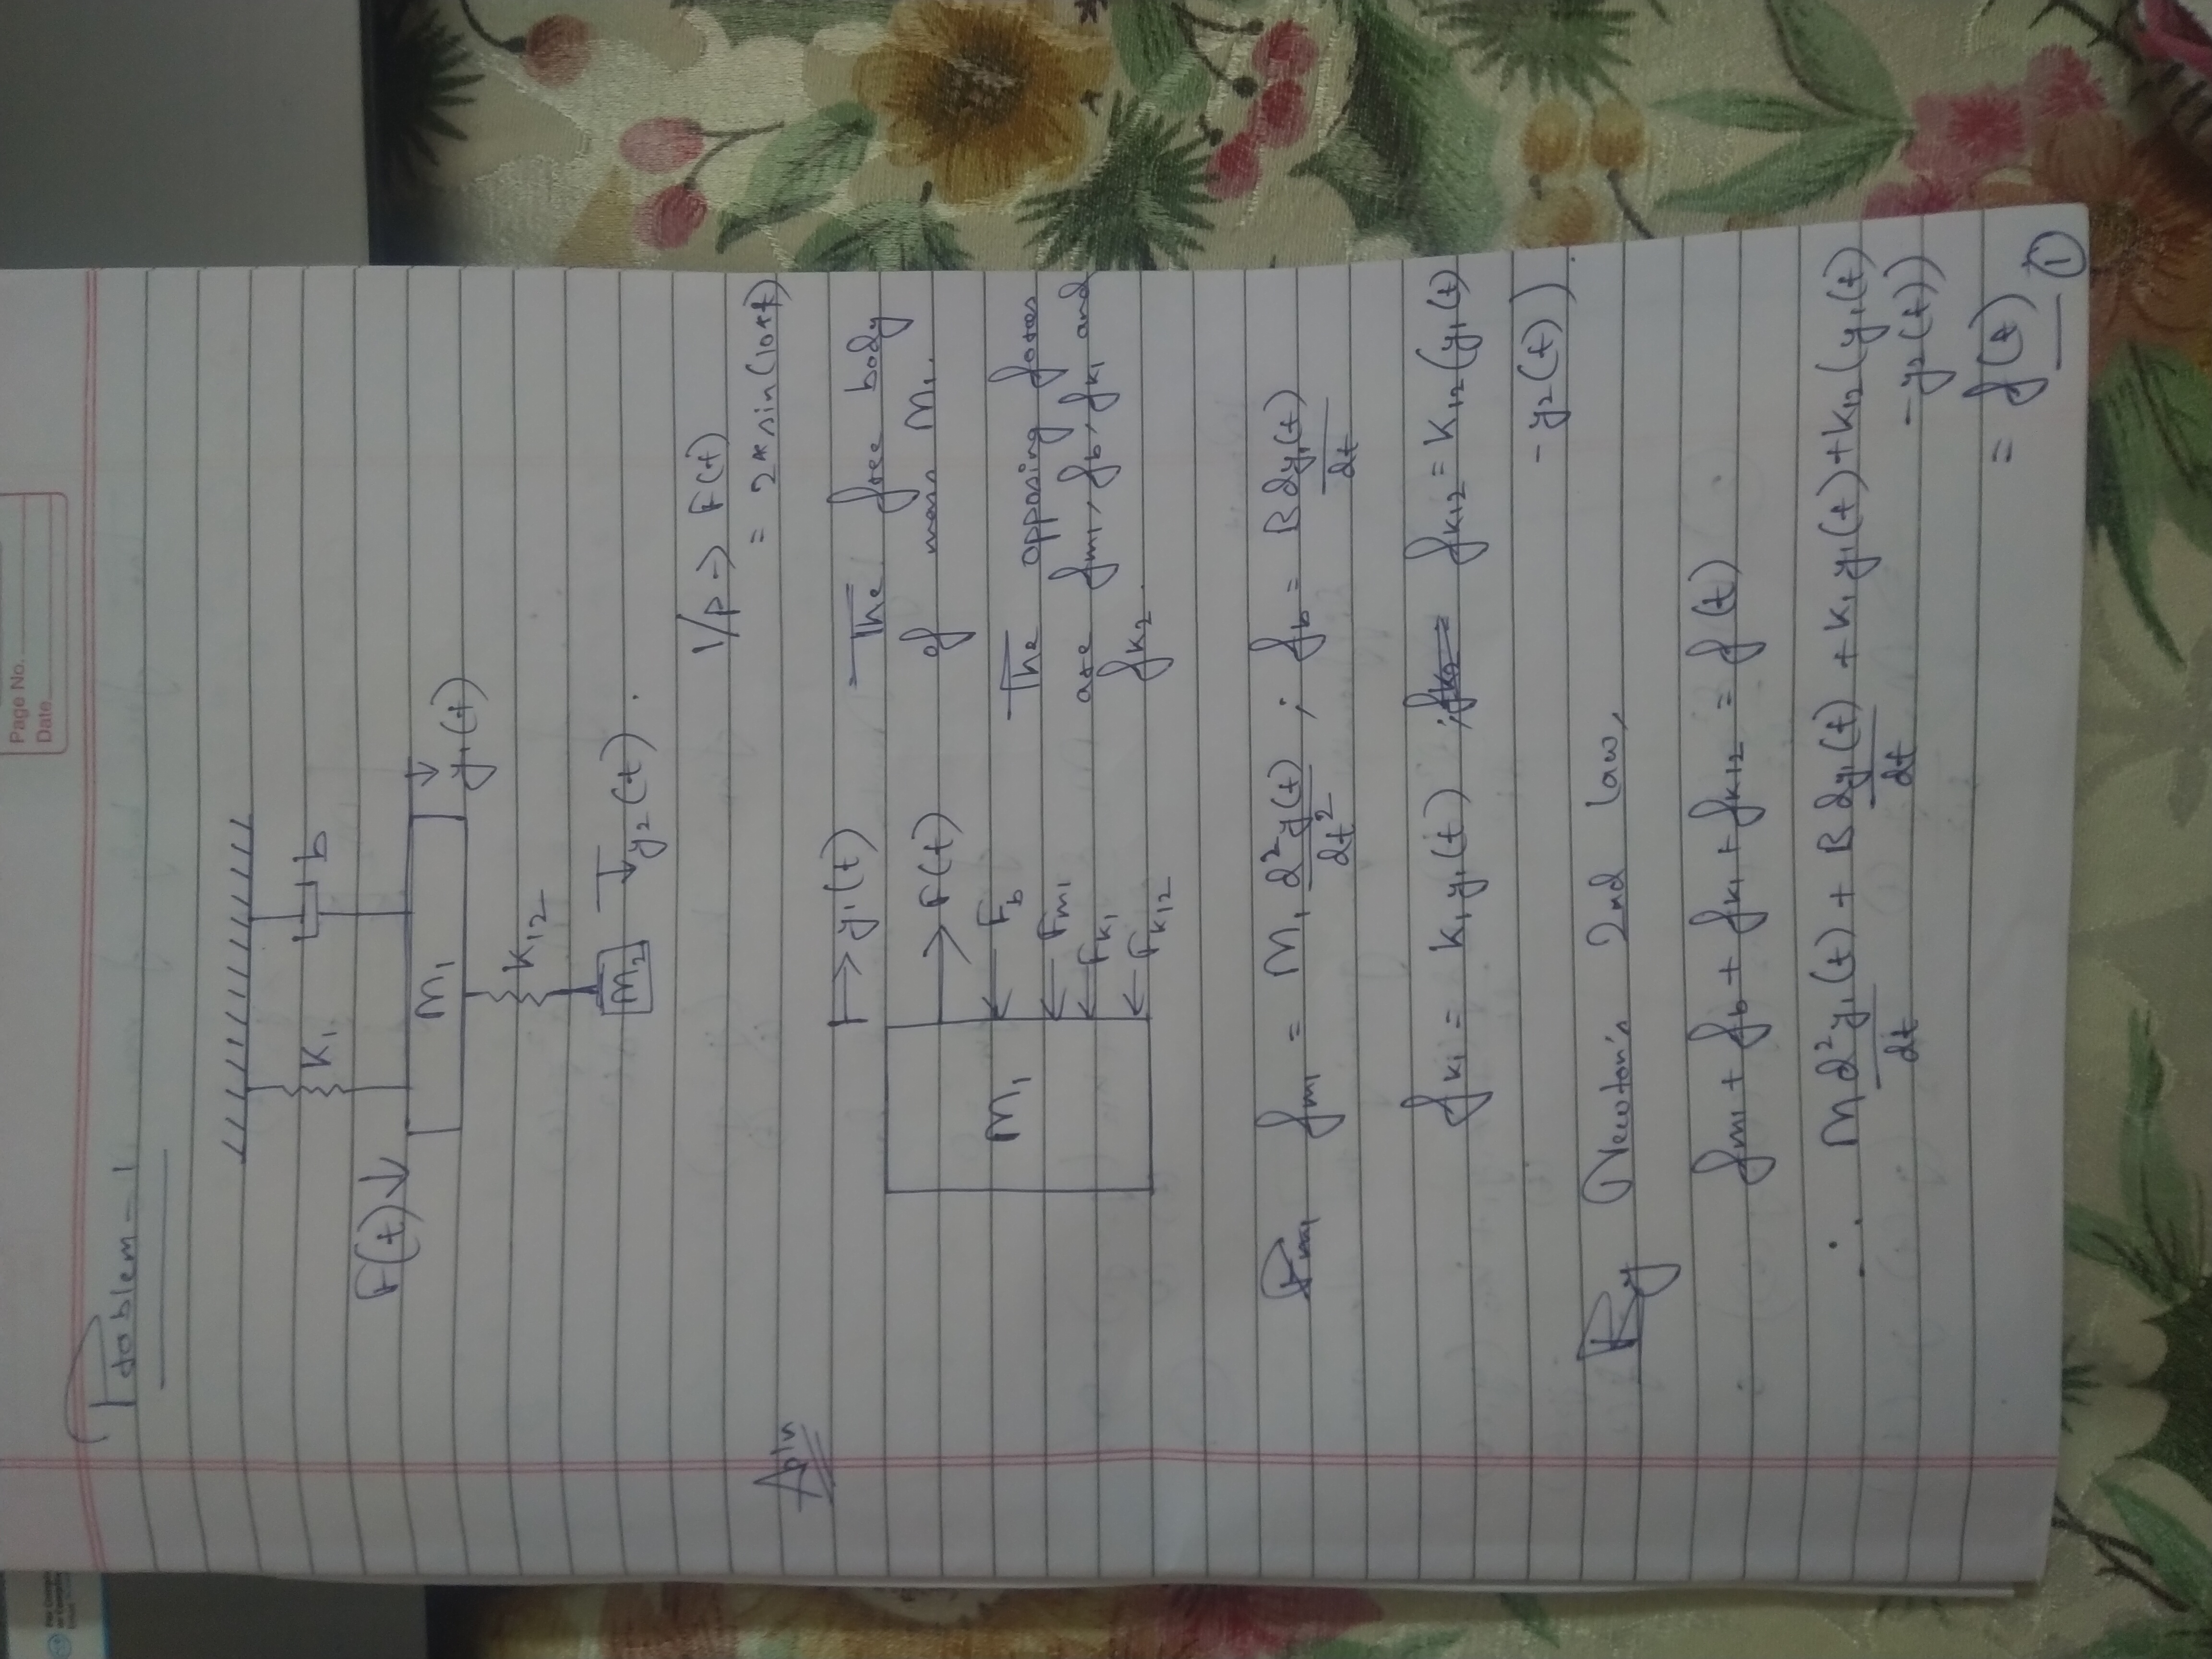 Page No.
Date
Problem - 1
K₁
b
F(t) ↓
M₁
↓ y₁(t)
K₁₂
M₂
↓ y₂(t).
I/p → F(t)
= 2*sin(10*t)
Soln
→ y₁(t)
→ F(t)
M₁
← F_b
← F_m₁
← F_K₁
← F_K₁₂
The free body
of mass M₁.
The opposing forces
are f_m₁, f_b, f_K₁ and
f_K₂.
f_m₁ = M₁ d²y(t)/dt² ; f_b = B dy₁(t)/dt
f_K₁ = K₁y₁(t) ; f_K₁₂ = K₁₂(y₁(t)
- y₂(t)).
By Newton's 2nd law,
f_m₁ + f_b + f_K₁ + f_K₁₂ = f(t)
∴ M d²y₁(t)/dt + B dy₁(t)/dt + K₁y₁(t) + K₁₂(y₁(t)
- y₂(t))
= f(t)
— ①